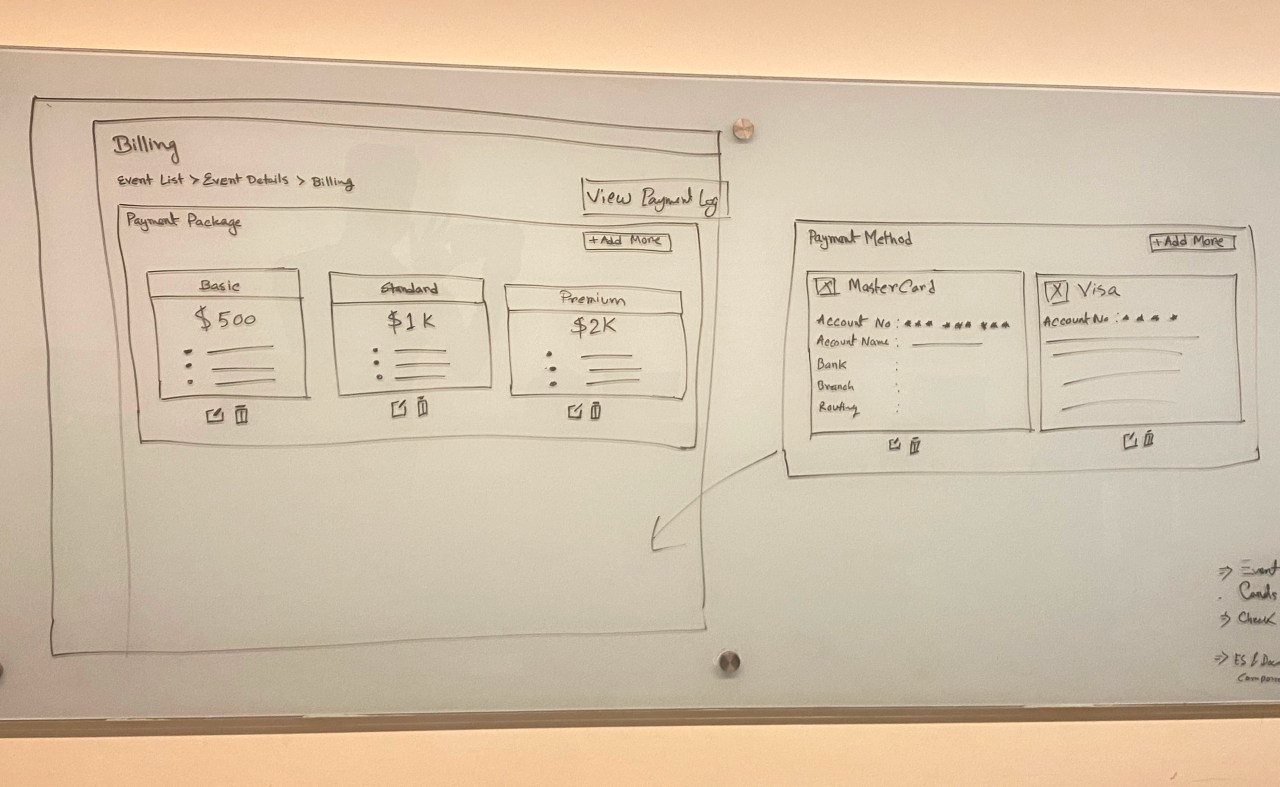 Billing
Event List > Event Details > Billing
View Payment Log
Payment Package
+ Add More
Basic
$500
Standard
$1K
Premium
$2K
Payment Method
+ Add More
MasterCard
Account No : *** *** ***
Account Name :
Bank :
Branch :
Routing :
Visa
Account No : * * * *
⇒ Event
Cards
⇒ Check
⇒ ES &